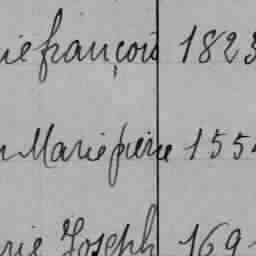 ie françois 1823
n Marie pierre 155
rie Joseph 169